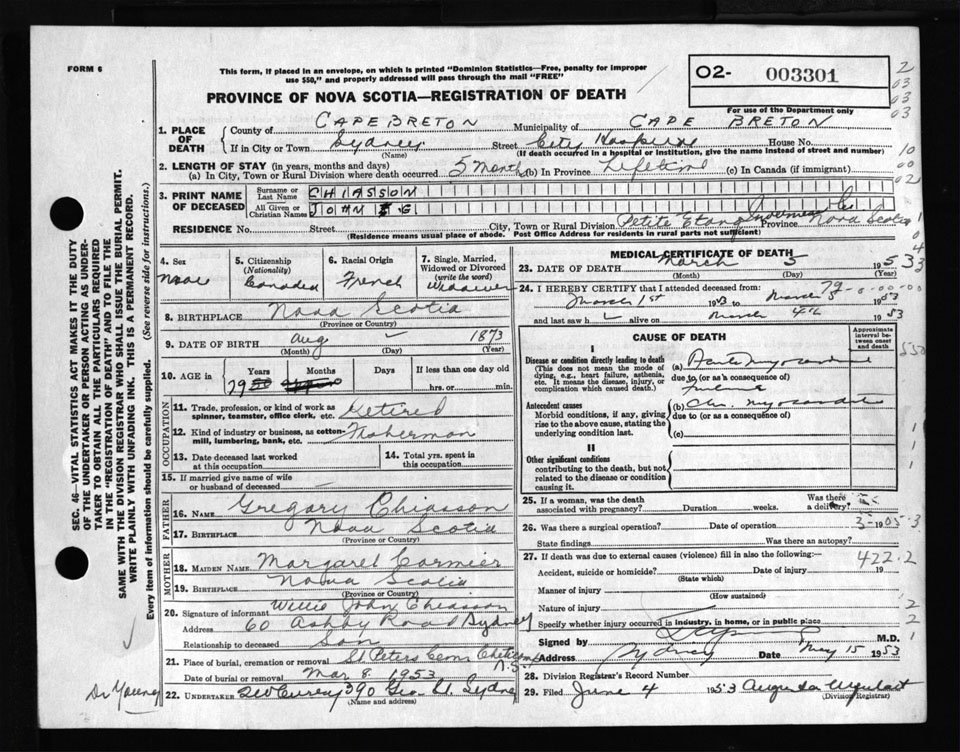 FORM 6
This form, if placed in an envelope, on which is printed "Dominion Statistics—Free, penalty for improper
use $50," and properly addressed will pass through the mail "FREE"
PROVINCE OF NOVA SCOTIA—REGISTRATION OF DEATH
02- 003301
For use of the Department only
2
03
03
03
10
00
02
1. PLACE OF DEATH
County of CAPE BRETON Municipality of CAPE BRETON
If in City or Town Sydney Street City Hospital House No.
(Name) (If death occurred in a hospital or institution, give the name instead of street and number)
2. LENGTH OF STAY (in years, months and days)
(a) In City, Town or Rural Division where death occurred 5 months (b) In Province Lifetime (c) In Canada (if immigrant)
3. PRINT NAME OF DECEASED
Surname or Last Name CHIASSON
All Given or Christian Names JOHN G
RESIDENCE No. Street City, Town or Rural Division Petite Etang Inverness Co Province Nova Scotia
(Residence means usual place of abode. Post Office Address for residents in rural parts not sufficient)
4. Sex Male
5. Citizenship (Nationality) Canadian
6. Racial Origin French
7. Single, Married, Widowed or Divorced (write the word) Widower
8. BIRTHPLACE Nova Scotia
(Province or Country)
9. DATE OF BIRTH Aug 1873
(Month) (Day) (Year)
10. AGE in Years Months Days If less than one day old
79 hrs. or min.
OCCUPATION
11. Trade, profession, or kind of work as spinner, teamster, office clerk, etc. Retired
12. Kind of industry or business, as cotton-mill, lumbering, bank, etc. Fisherman
13. Date deceased last worked at this occupation
14. Total yrs. spent in this occupation
15. If married give name of wife or husband of deceased
FATHER
16. NAME Gregory Chiasson
17. BIRTHPLACE Nova Scotia
(Province or Country)
MOTHER
18. MAIDEN NAME Margaret Cormier
19. BIRTHPLACE Nova Scotia
(Province or Country)
20. Signature of informant Willie John Chiasson
Address 60 Ashby Road Sydney
Relationship to deceased Son
21. Place of burial, cremation or removal St Peters Cem Cheticamp N.S.
Date of burial or removal Mar 8 1953
22. UNDERTAKER 390 Geo. St. Sydney
(Name and address)
Dr Young
MEDICAL CERTIFICATE OF DEATH
23. DATE OF DEATH March 5 1953
(Month) (Day) (Year)
24. I HEREBY CERTIFY that I attended deceased from:
March 1st 1953 to March 5 1953
and last saw h alive on March 4th 1953
CAUSE OF DEATH
Approximate interval between onset and death
I
Disease or condition directly leading to death
(This does not mean the mode of dying, e.g., heart failure, asthenia, etc. It means the disease, injury, or complication which caused death.)
(a) Acute myocardial
due to (or as a consequence of)
failure
Antecedent causes
Morbid conditions, if any, giving rise to the above cause, stating the underlying condition last.
(b) Chr. myocarditis
due to (or as a consequence of)
(c)
II
Other significant conditions
contributing to the death, but not related to the disease or condition causing it.
25. If a woman, was the death associated with pregnancy? Duration weeks. Was there a delivery?
26. Was there a surgical operation? Date of operation 19
State findings Was there an autopsy?
27. If death was due to external causes (violence) fill in also the following:—
422.2
Accident, suicide or homicide? Date of injury 19
(State which)
Manner of injury
(How sustained)
Nature of injury
Specify whether injury occurred in industry, in home, or in public place
Signed by M.D.
Address Sydney Date May 15 1953
28. Division Registrar's Record Number
29. Filed June 4 1953 Augusta Urquhart
(Division Registrar)
SEC. 46—VITAL STATISTICS ACT MAKES IT THE DUTY
OF THE UNDERTAKER OR PERSON ACTING AS UNDER-
TAKER TO OBTAIN ALL THE PARTICULARS REQUIRED
IN THE "REGISTRATION OF DEATH" AND TO FILE THE
SAME WITH THE DIVISION REGISTRAR WHO SHALL ISSUE THE BURIAL PERMIT.
WRITE PLAINLY WITH UNFADING INK. THIS IS A PERMANENT RECORD.
Every item of information should be carefully supplied. (See reverse side for instructions.)